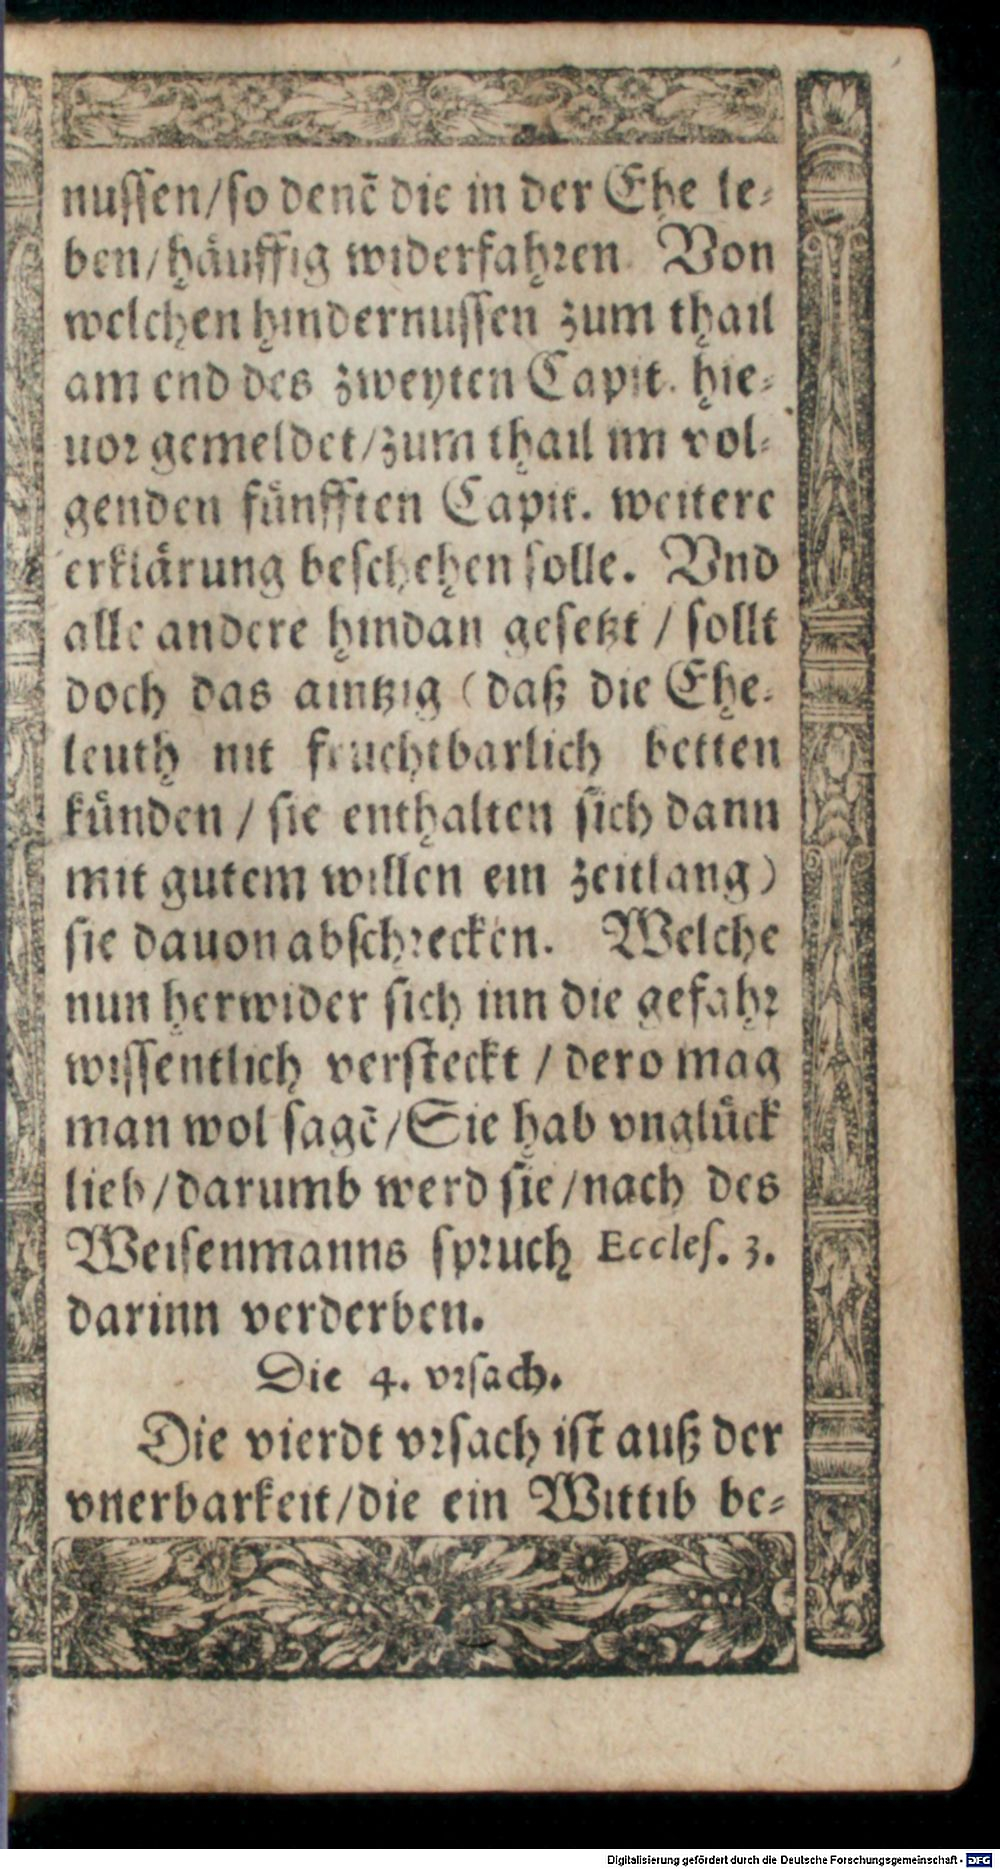 nussen/so denẽ die in der Ehe le-
ben/häuffig widerfahren. Von
welchen hindernussen zum thail
am end des zweyten Capit. hie-
uor gemeldet/zum thail im vol-
genden fünfften Capit. weitere
erklärung beschehen solle. Vnd
alle andere hindan gesetzt / sollt
doch das aintzig (daß die Ehe-
leuth nit fruchtbarlich betten
künden / sie enthalten sich dann
mit gutem willen ein zeitlang)
sie dauon abschrecken. Welche
nun herwider sich inn die gefahr
wissentlich versteckt / dero mag
man wol sagẽ/Sie hab vnglück
lieb/darumb werd sie/nach des
Weisenmanns spruch Eccles. 3.
darinn verderben.
Die 4. vrsach.
Die vierdt vrsach ist auß der
vnerbarkeit/die ein Wittib be-
Digitalisierung gefördert durch die Deutsche Forschungsgemeinschaft - DFG